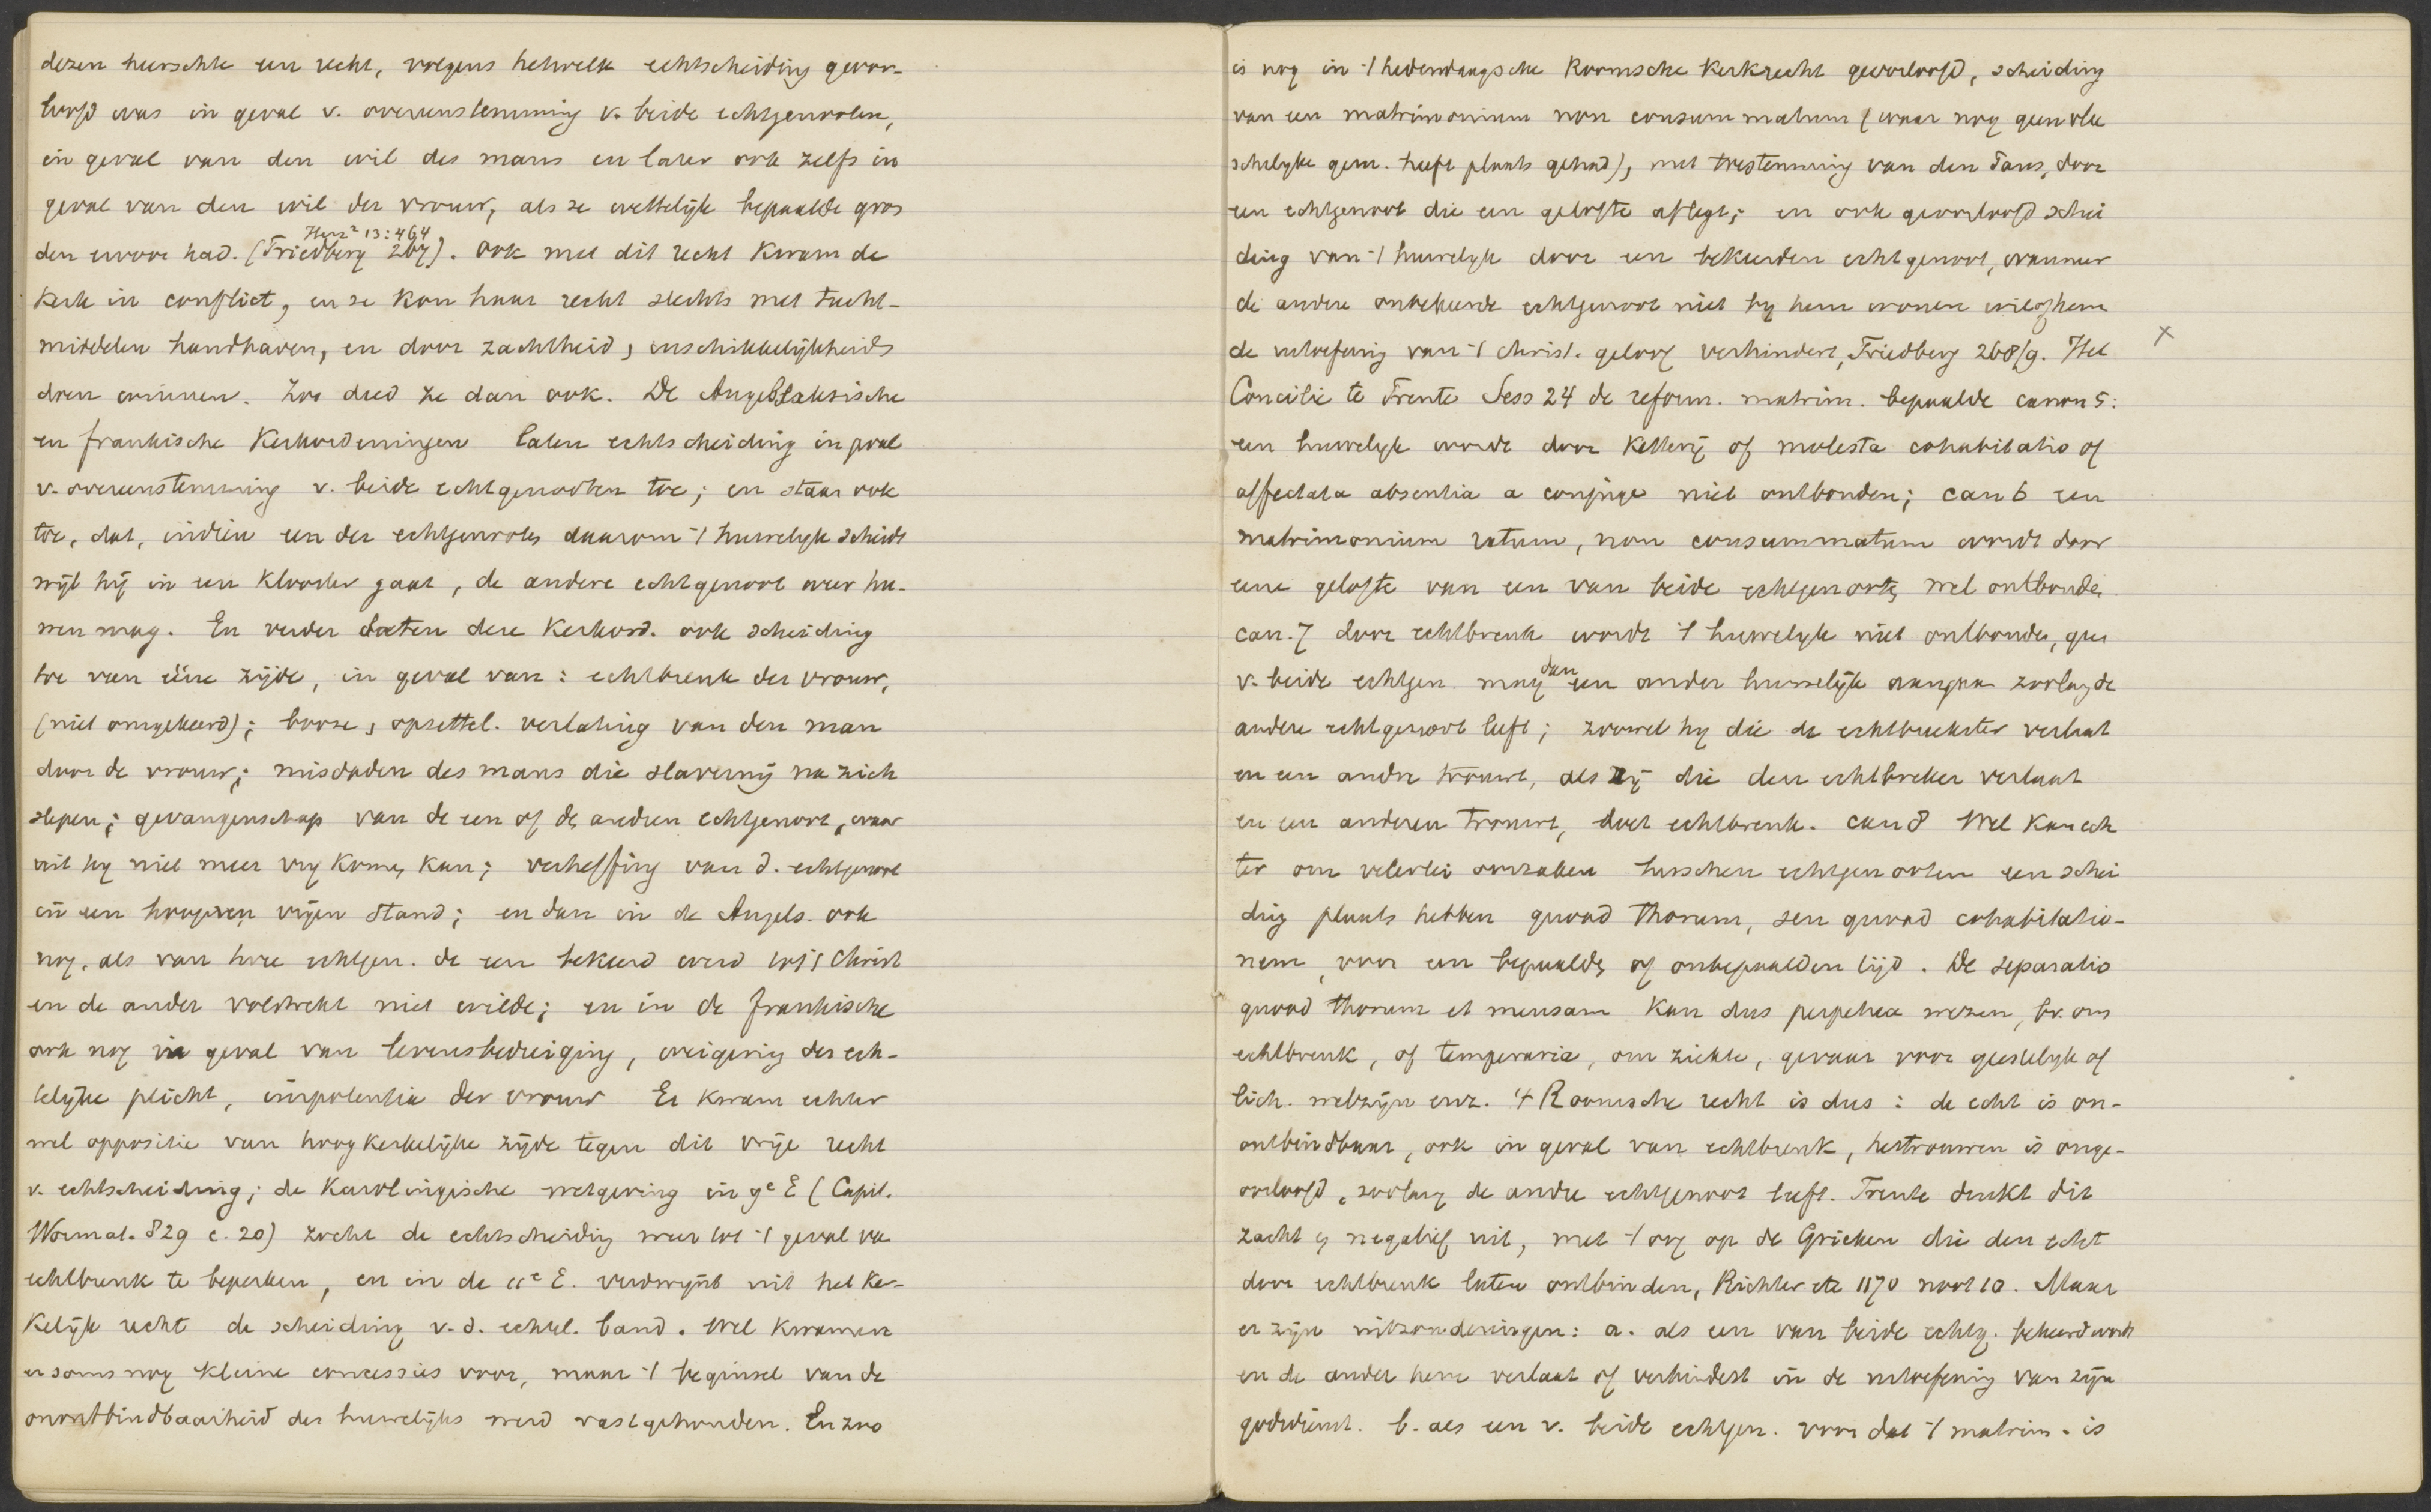 dezen heerschte een recht, volgens hetwelk echtscheiding geoor-
loofd was in geval v. overeenstemming v. beide echtgenooten,
in geval van den wil des mans en later ook zelfs in
geval van den wil der vrouw, als ze wettelijk bepaalde gron
Herz² 13:464
den ervoor had. (Friedberg 267). Ook met dit recht kwam de
Kerk in conflict, en ze kon haar recht slechts met tucht-
middelen handhaven, en door zachtheid, inschikkelijkheid
doen winnen. Zoo deed ze dan ook. De Angelsaksische
en frankische Kerkordeningen laten echtscheiding in geval
v. overeenstemming v. beide echtgenooten toe; en staan ook
toe, dat, indien een der echtgenooten daarom 't huwelijk scheidt
wijl hij in een klooster gaat, de andere echtgenoot weer hu-
wen mag. En verder laten deze Kerkord. ook scheiding
toe van ééne zijde, in geval van: echtbreuk der vrouw,
(niet omgekeerd); booze, opzettel. verlating van den man
door de vrouw; misdaden des mans die slavernij na zich
slepen; gevangenschap van de een of de andere echtgenoot, waar
uit hij niet meer vrij komen kan; verheffing van d. echtgenoot
in een hoogeren vrijen stand; en dan in de Angels. ook
nog, als van twee echtgen. de een bekeerd werd tot 't Christ
en de ander volstrekt niet wilde; en in de frankische
ook nog in geval van levensbedreiging, weigering der ech-
telijke plicht, impotentia der vrouw Er kwam echter
wel oppositie van hoog kerkelijke zijde tegen dit vrije recht
v. echtscheiding; de Karolingische wetgeving in 9e E (Capit.
Wormat. 829 c. 20) zocht de echtscheiding weer tot 't geval van
echtbreuk te beperken, en in de 11e E. verdwijnt uit het ker-
kelijk recht de scheiding v. d. echtel. band. Wel kwamen
er soms nog kleine concessies voor, maar 't beginsel van de
onontbindbaarheid des huwelijks werd vastgehouden. En zoo
is nog in 't hedendaagsche Roomsche Kerkrecht geoorloofd, scheiding
van een matrimonium non consummatum (waar nog geen vlee
schelijke gem. heeft plaats gehad), met toestemming van den Paus, door
een echtgenoot die een gelofte aflegt; en ook geoorloofd schei
ding van 't huwelijk door een bekeerden echtgenoot, wanneer
de andere onbekeerde echtgenoot niet bij hem wonen wil of hem
de uitoefening van 't christ. geloof verhindert, Friedberg 268/9. Het
x
Concilie te Trente Sess 24 de reform. matrim. bepaalde canon 5:
een huwelijk wordt door Ketterij of molesta cohabitatio of
affectata absentia a conjuge niet ontbonden; can 6 een
matrimonium ratum, non consummatum wordt door
eene gelofte van een van beide echtgenooten wel ontbonden.
can. 7 door echtbreuk wordt 't huwelijk niet ontbonden, geen
v. beide echtgen. mag dan een ander huwelijk aangaan zoolang de
andere echtgenoot leeft; zoowel hij die de echtbreekster verlaat
en een andre trouwt, als zij die den echtbreker verlaat
en een anderen trouwt, doet echtbreuk. can 8 Wel kan ech
ter om velerlei oorzaken tusschen echtgenooten een schei
ding plaats hebben quoad thorum, seu quoad cohabitatio-
nem, voor een bepaalden of onbepaalden tijd. De separatio
quoad thorum et mensam kan dus perpetua wezen, bv. om
echtbreuk, of temporaria, om ziekte, gevaar voor geestelijk of
lich. welzijn enz. 't Roomsche recht is dus: de echt is on-
ontbindbaar, ook in geval van echtbreuk, hertrouwen is onge-
oorloofd, zoolang de andre echtgenoot leeft. Trente drukt dit
zacht en negatief uit, met 't oog op de Grieken die den echt
door echtbreuk laten ontbinden, Richter etc 1170 noot 10. Maar
er zijn uitzonderingen: a. als een van beide echtg. bekeerd wordt
en de ander hem verlaat of verhindert in de uitoefening van zijn
godsdienst. b. als een v. beide echtgen. voor dat 't matrim. is